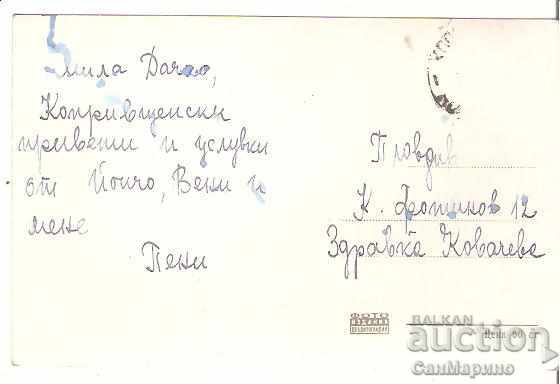 Мила Дачо,
Копривщенски
привети и услувки
от Йончо, Вени и
мене
Пени
Пловдив
К. Фотинов 12
Здравка Ковачева
ФОТО
Цена 60 ст
BALKAN
auction
СанМарино